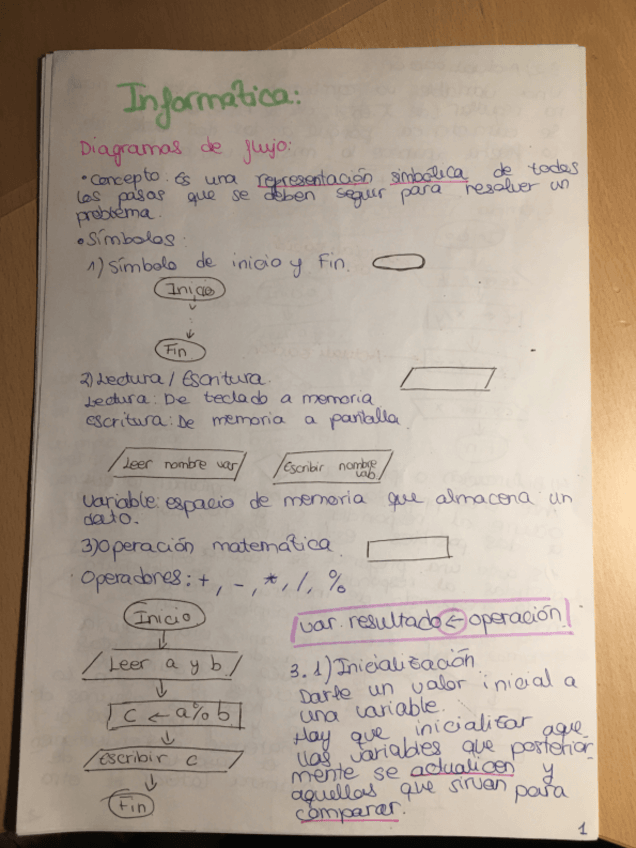 Informática:
Diagramas de flujo:
• Concepto: Es una representación simbólica de todos
los pasos que se deben seguir para resolver un
problema.
• Símbolos:
1) Símbolo de inicio y Fin.
Inicio
Fin
2) Lectura / Escritura.
Lectura: De teclado a memoria
escritura: De memoria a pantalla
Leer nombre var
Escribir nombre
vab
Variable: espacio de memoria que almacena un
dato.
3) Operación matemática
Operadores: +, -, *, /, %
Inicio
Leer a y b
C ← a % b
Escribir c
Fin
var. resultado ← operación
3.1) Inicialización
Darle un valor inicial a
una variable.
Hay que inicializar aque-
llas variables que posterior-
mente se actualicen y
aquellas que sirvan para
comparar.
1